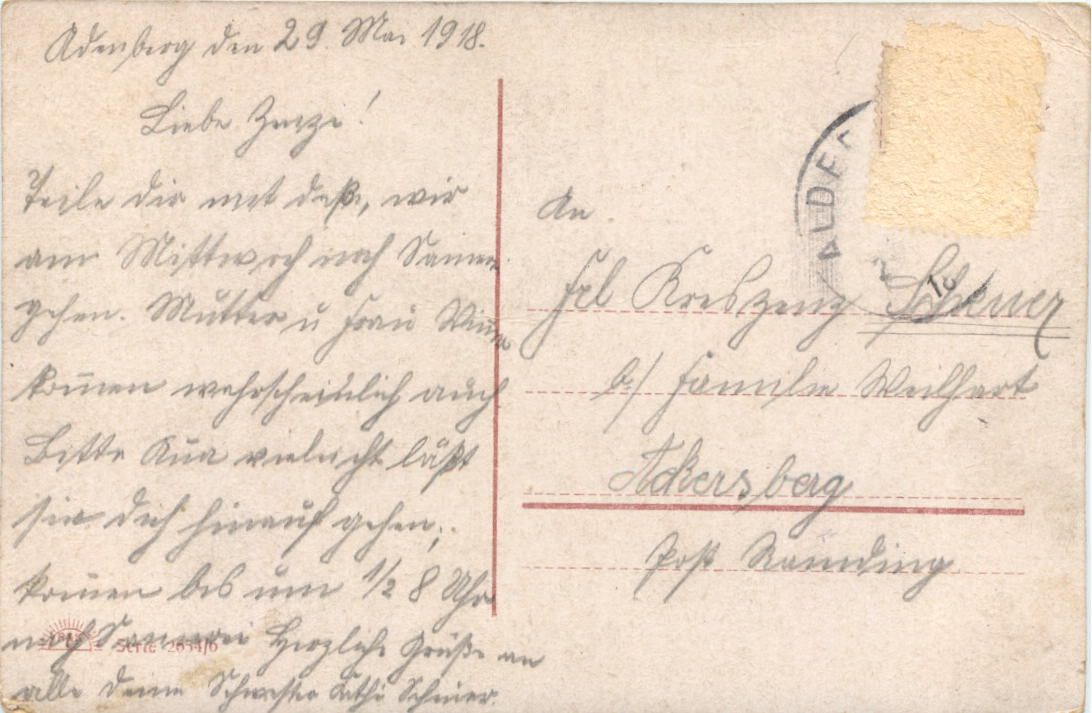 Adenberg den 29. Mai 1918.
Liebe Zenzi!
Teile dir mit daß, wir
am Mittwoch nach
gehen. Mutter u Frau
kom̄en wahrscheinlich auch
Bitte vieleicht läßt
sie dich hinauf gehen,
kom̄en bis um 1/2 8 Uhr
nach Herzliche Grüße an
alle deine Schwester Kathi
Serie 2654/6
ALDE
An
Frl Kreszenz
b/ Familie Weilhart
Ackersberg
Post Ramding